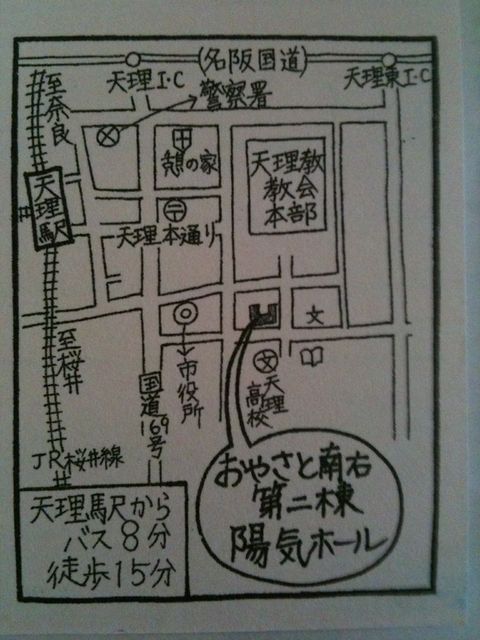 (名阪国道)
天理I·C
天理東I·C
至奈良
警察署
憩の家
天理教
教会
本部
天理駅
〒
天理本通り
文
至桜井
市役所
文
天理
高校
国道169号
JR桜井線
おやさと南右
第二棟
陽気ホール
天理駅から
バス8分
徒歩15分